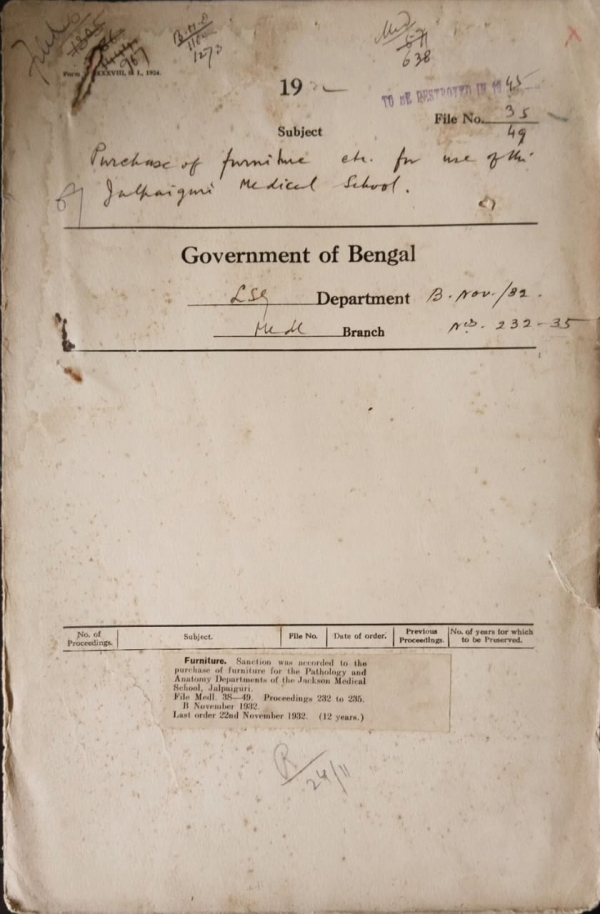 B.M.P
1273
638
19
TO BE DESTROYED IN 19 45
File No. 35
49
Subject
Purchase of furniture etc. for use of the
Jalpaiguri Medical School.
Government of Bengal
LSG Department B. Nov./32.
Medl Branch Nos. 232-35
No. of Proceedings. Subject. File No. Date of order. Previous Proceedings. No. of years for which to be Preserved.
Furniture. Sanction was accorded to the
purchase of furniture for the Pathology and
Anatomy Departments of the Jackson Medical
School, Jalpaiguri.
File Medl. 3S—49. Proceedings 232 to 235.
B November 1932.
Last order 22nd November 1932. (12 years.)
24/11